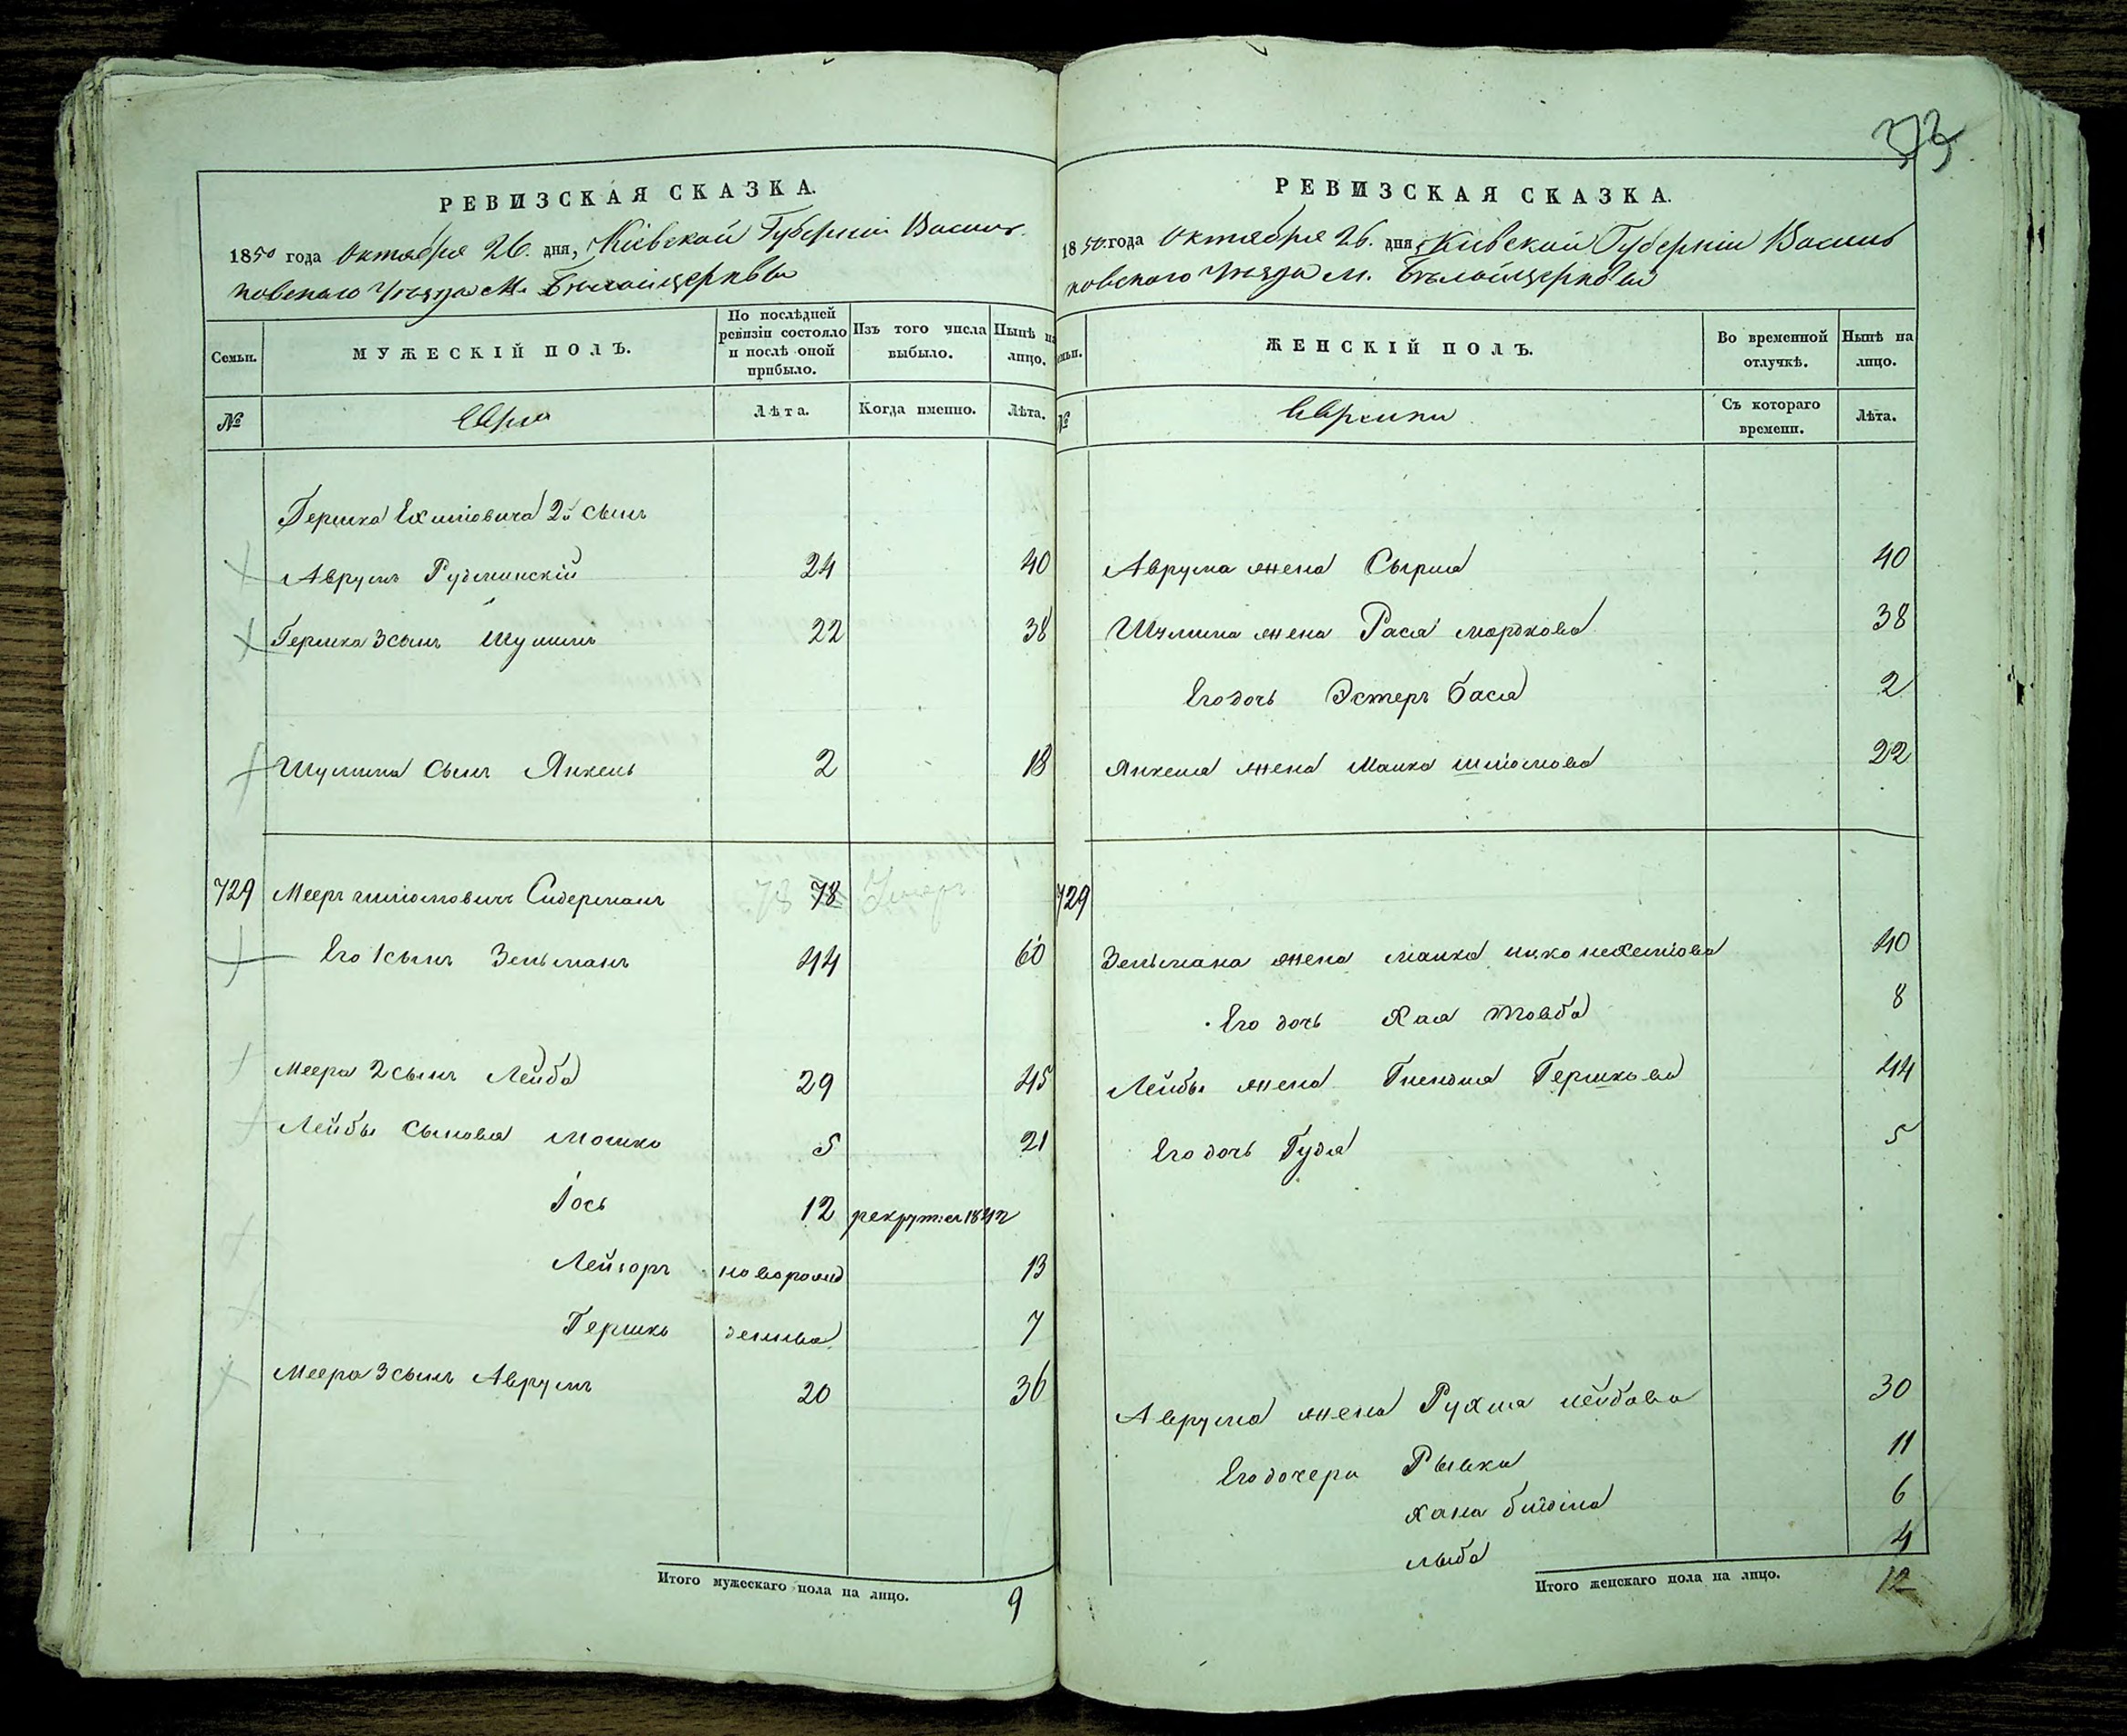 373
РЕВИЗСКАЯ СКАЗКА.
1850 года Октября 26. дня, Кіевской Губерніи Василь
ковскаго Уѣзда М. Бѣлойцерквы
Семьи.
МУЖЕСКІЙ ПОЛЪ.
По послѣдней ревизіи состояло и послѣ оной прибыло.
Изъ того числа выбыло.
Нынѣ на лицо.
№
Евреи
Лѣта.
Когда именно.
Лѣта.
Гершка 2й сынъ
Аврумъ 24 40
Гершка 3 сынъ Шулимъ 22 38
Шулима сынъ Янкель 2 18
729 Мееръ Сидерманъ 78 78 Умеръ
Его 1 сынъ Зельманъ 44 60
Меера 2 сынъ Лейба 29 45
Лейбы сыновья Мошко 5 21
Іось 12 рекрутъ 1842
Лейзоръ новорожд 13
Гершко денные 7
Меера 3 сынъ Аврумъ 20 36
Итого мужескаго пола на лицо. 9
РЕВИЗСКАЯ СКАЗКА.
1850 года Октября 26. дня, Кіевской Губерніи Василь
ковскаго Уѣзда М. Бѣлойцерквы
Семьи.
ЖЕНСКІЙ ПОЛЪ.
Во временной отлучкѣ.
Нынѣ на лицо.
№
Еврейки
Съ котораго времени.
Лѣта.
Аврума жена Сырля 40
Шулима жена Рася Мордкова 38
Его дочь Эстеръ Бася 2
Янкеля жена Малка Шліомова 22
729
Зельмана жена Малка 40
Его дочь Хая Товба 8
Лейбы жена Гнендля Гершкова 44
Его дочь Гудя 5
Аврума жена Рухля Лейбова 30
Его дочери Рывка 11
Хана 6
Лыба 4
Итого женскаго пола на лицо. 12